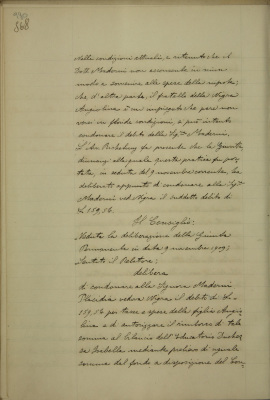 868
nelle condizioni attuali, e ritenuto che il
Dott. Madernni non acconsente in niun
modo a sovvenire alle spese della nipote;
che d'altra parte, il fratello della Nigra
Angiolina è un impiegato che pare non
versi in floride condizioni, e può intanto
condonare il debito della Sig.ra
L'Ass. fa presente che la Giunta,
dinanzi alla quale questa pratica fu por-
tata, in seduta del 9 novembre corrente, ha
deliberato appunto di condonare alla Sig.ra
ved. Nigra il suddetto debito di
L. 159,56.
Il Consiglio;
Veduta la deliberazione della Giunta
Permanente in data 9 novembre 1909;
Sentito il Relatore;
delibera
di condonare alla Signora
Placidia vedova Nigra il debito di L.
159,56 per tasse e spese della figlia Angio-
lina e di autorizzare il rimborso di tale
somma al bilancio dell'Educatorio Duches-
sa Isabella mediante prelievo di uguale
somma dal fondo a disposizione del Con-